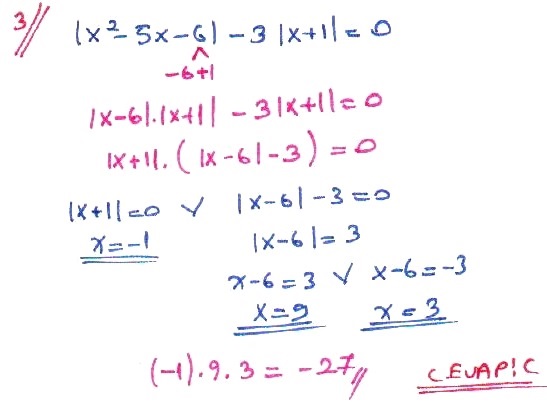 3// |x²-5x-6|-3|x+1|=0
-6+1
|x-6|.|x+1| -3|x+1|=0
|x+1|.(|x-6|-3)=0
|x+1|=0 ∨ |x-6|-3=0
x=-1 |x-6|=3
x-6=3 ∨ x-6=-3
x=9 x=3
(-1).9.3=-27// CEVAP:C